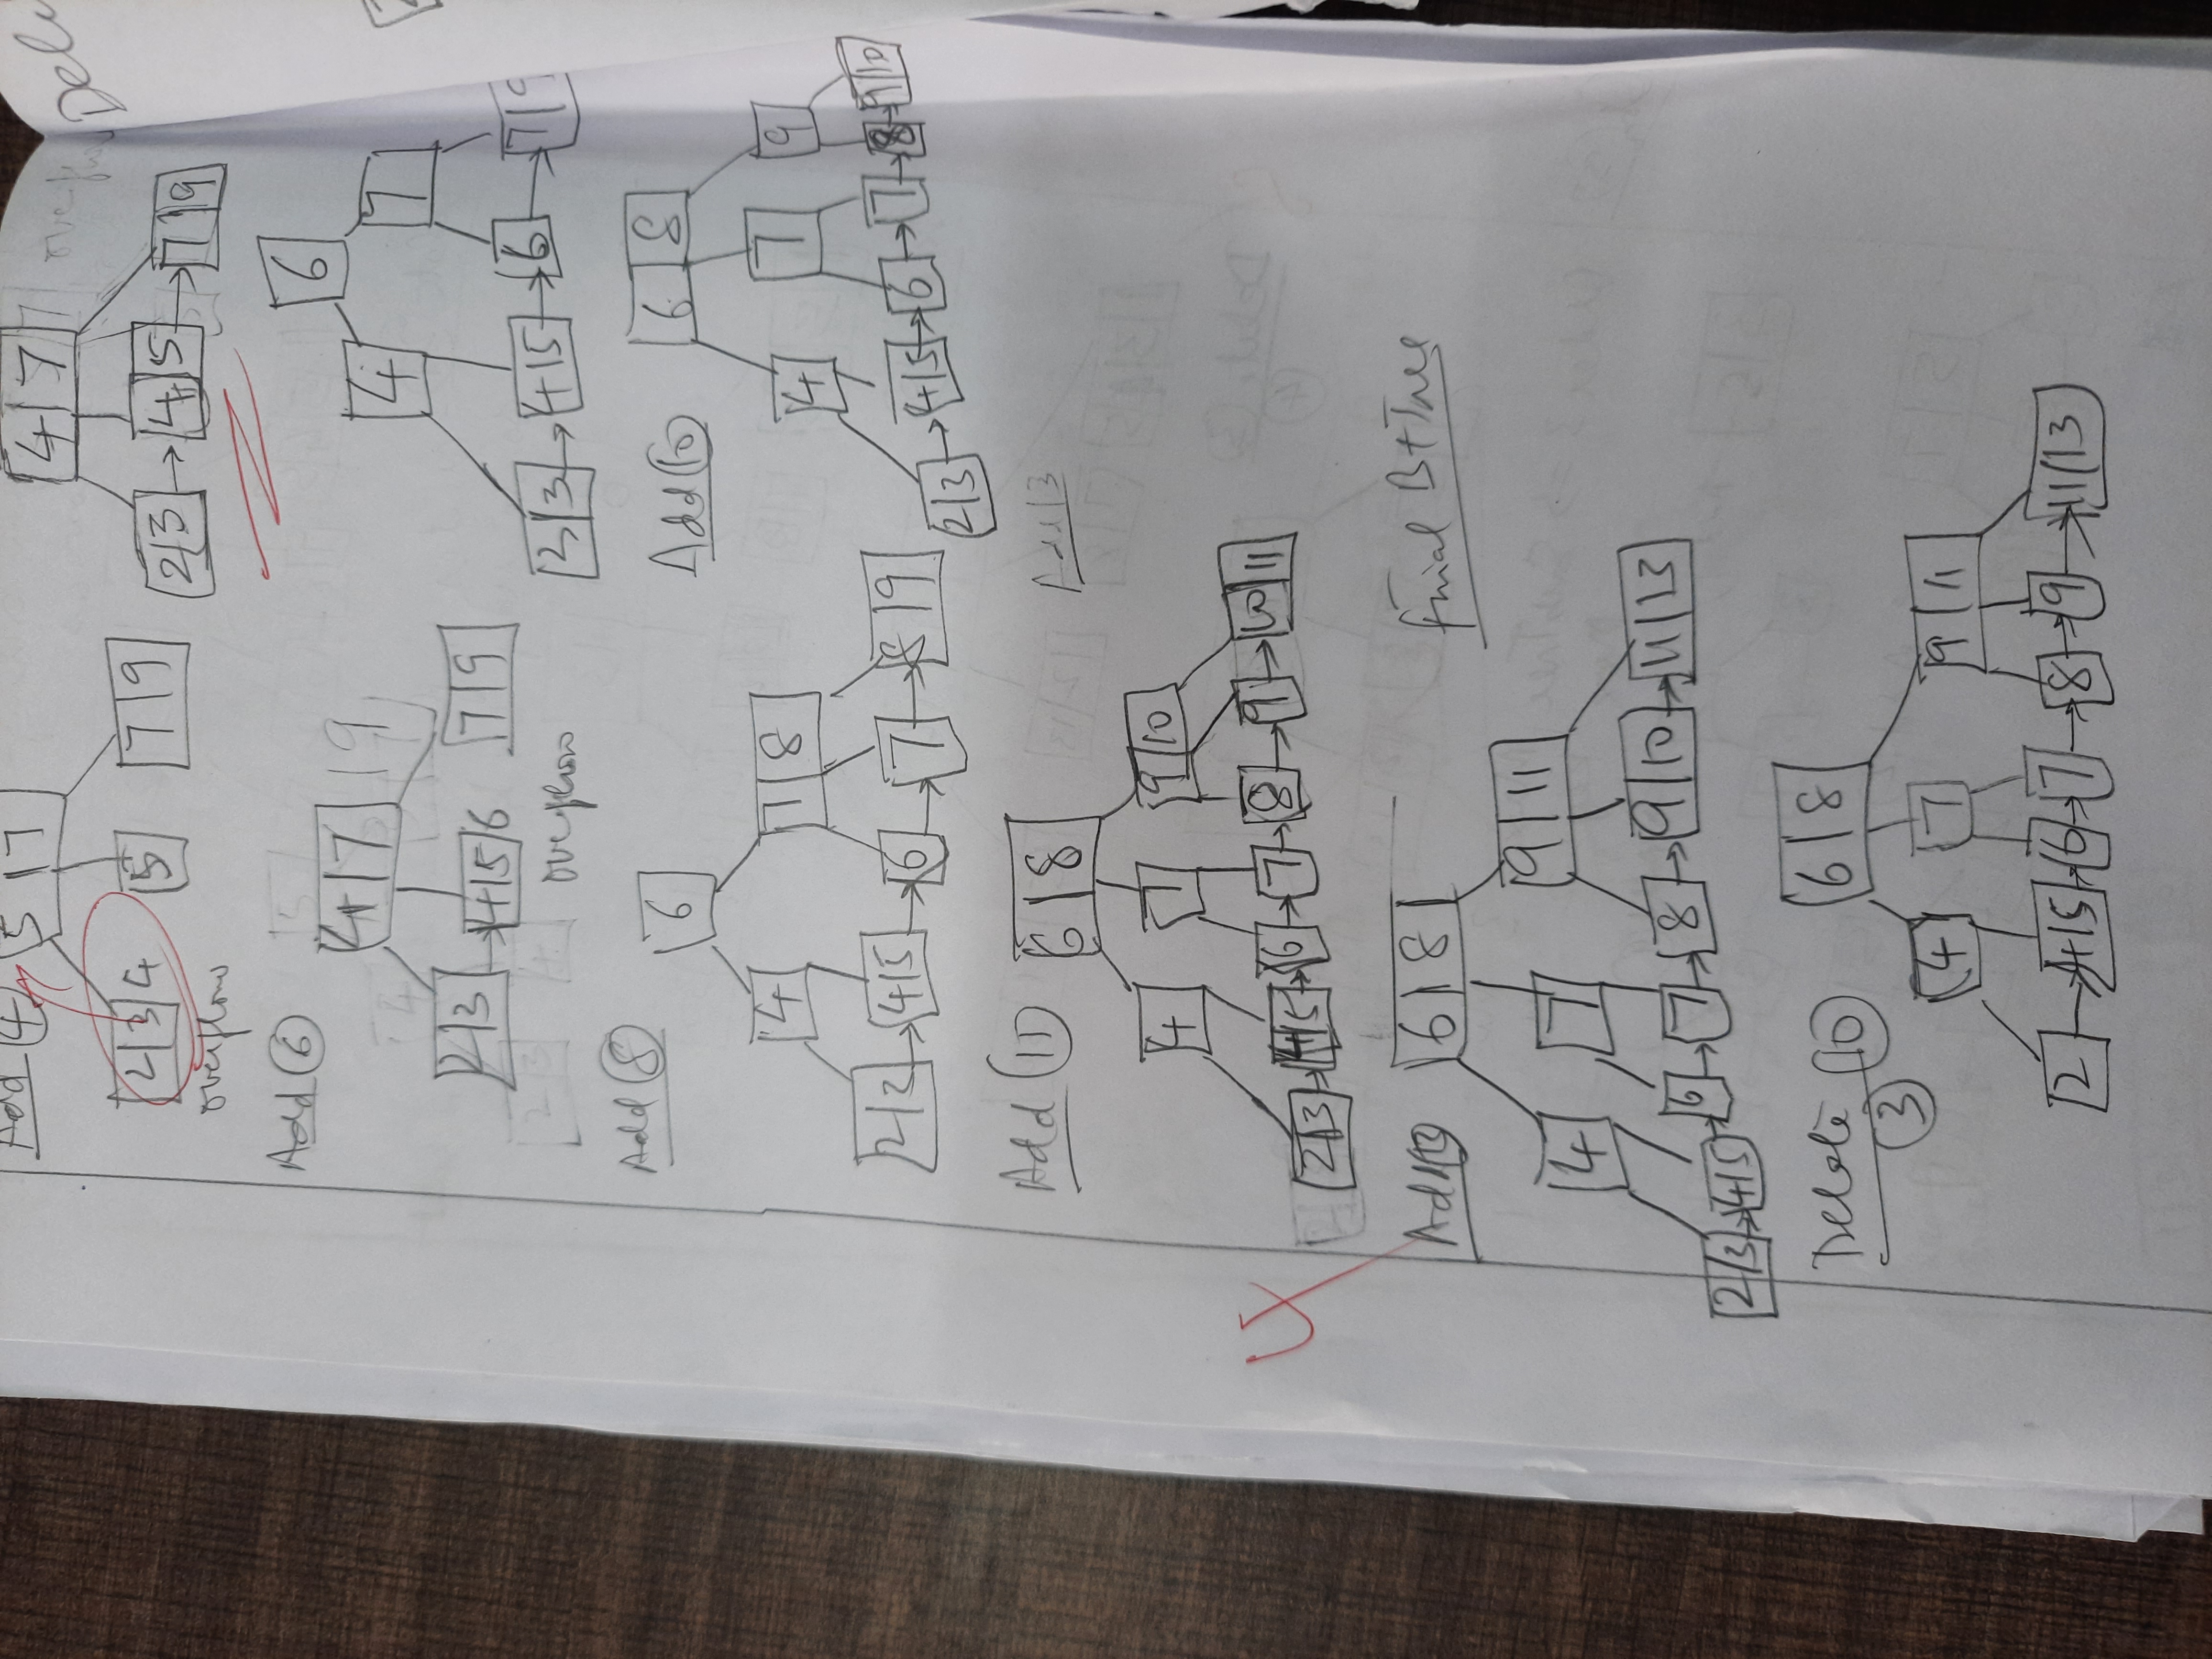 Add 4
5 | 7
2 | 3 | 4
5
7 | 9
overflow
4 | 7
2 | 3
4 | 5
7 | 9
Add 6
4 | 7
2 | 3
4 | 5 | 6
7 | 9
overflow
6
4
7
2 | 3
4 | 5
6
7 | 9
Add 8
6
4
7 | 8
2 | 3
4 | 5
6
7
8 | 9
Add 10
6 | 8
4
7
9
2 | 3
4 | 5
6
7
8
9 | 10
Add 11
6 | 8
4
7
9 | 10
2 | 3
4 | 5
6
7
8
9
10 | 11
Add 13
4
Add 13
6 | 8
4
7
9 | 11
2 | 3
4 | 5
6
7
8
9 | 10
11 | 13
Final B+Tree
Delete 10
3
6 | 8
4
7
9 | 11
2
4 | 5
6
7
8
9
11 | 13